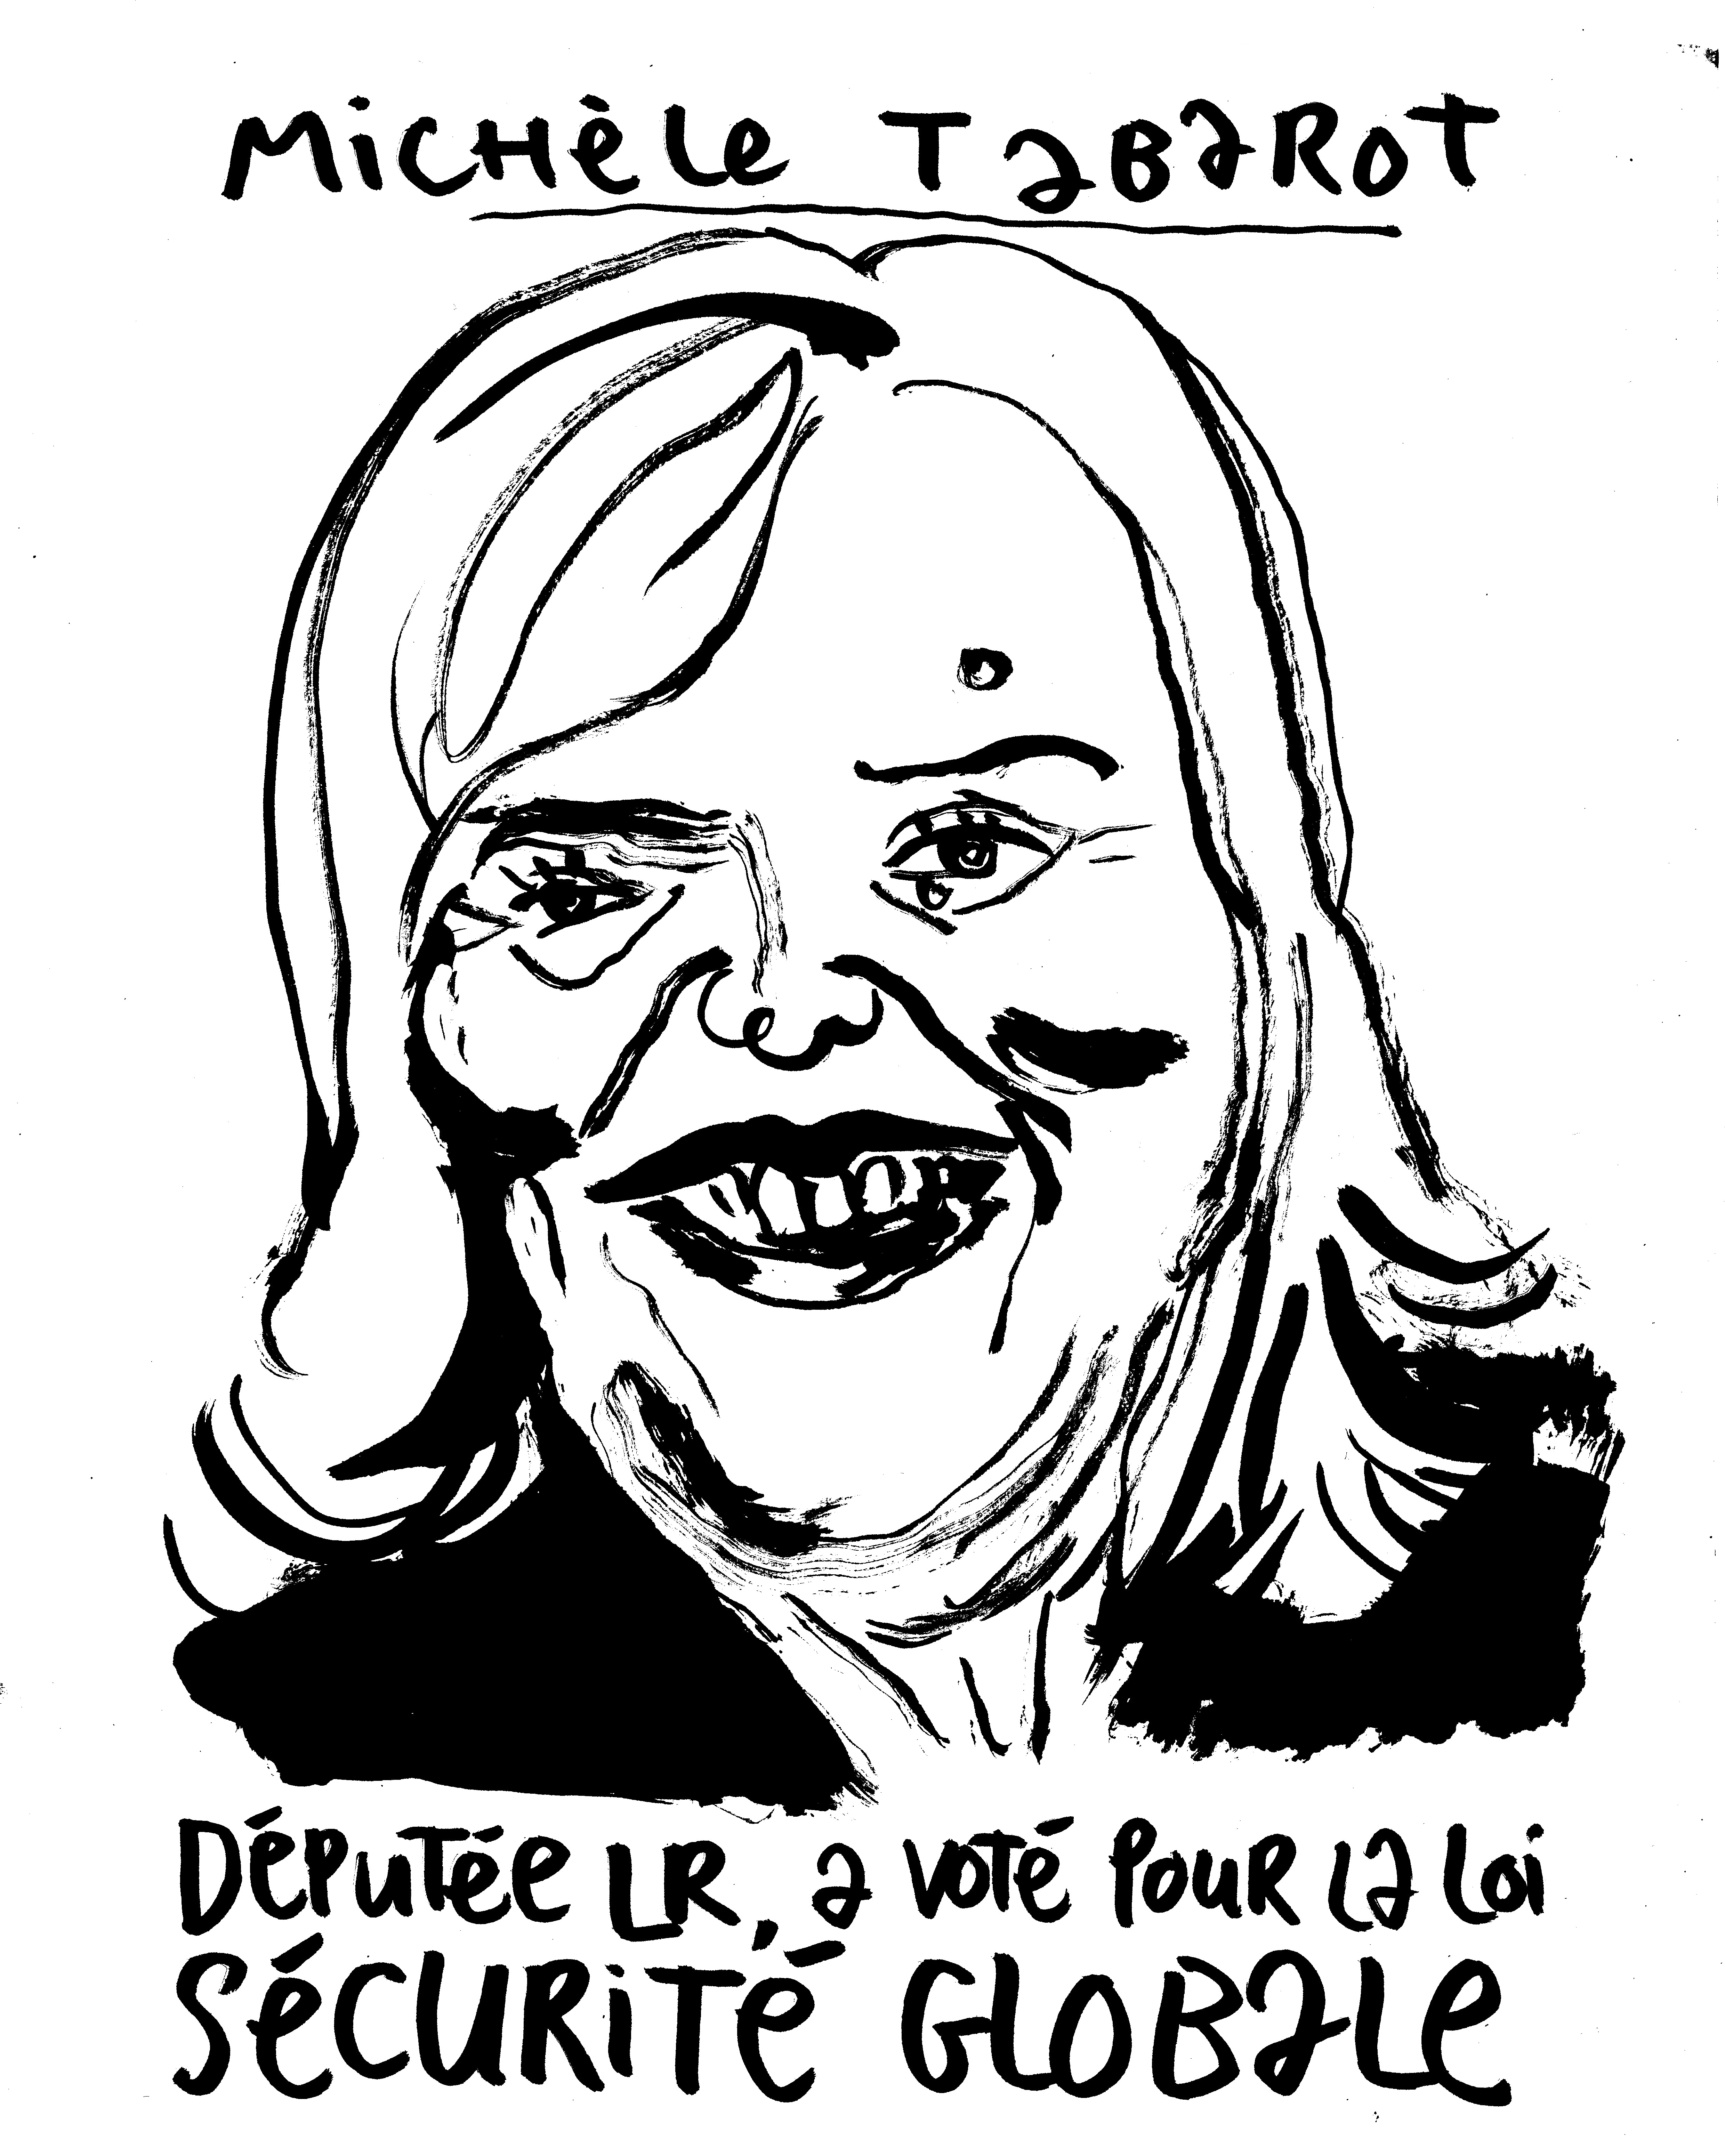 Michèle Tabarot
Députée LR, a voté pour la loi
Sécurité Globale